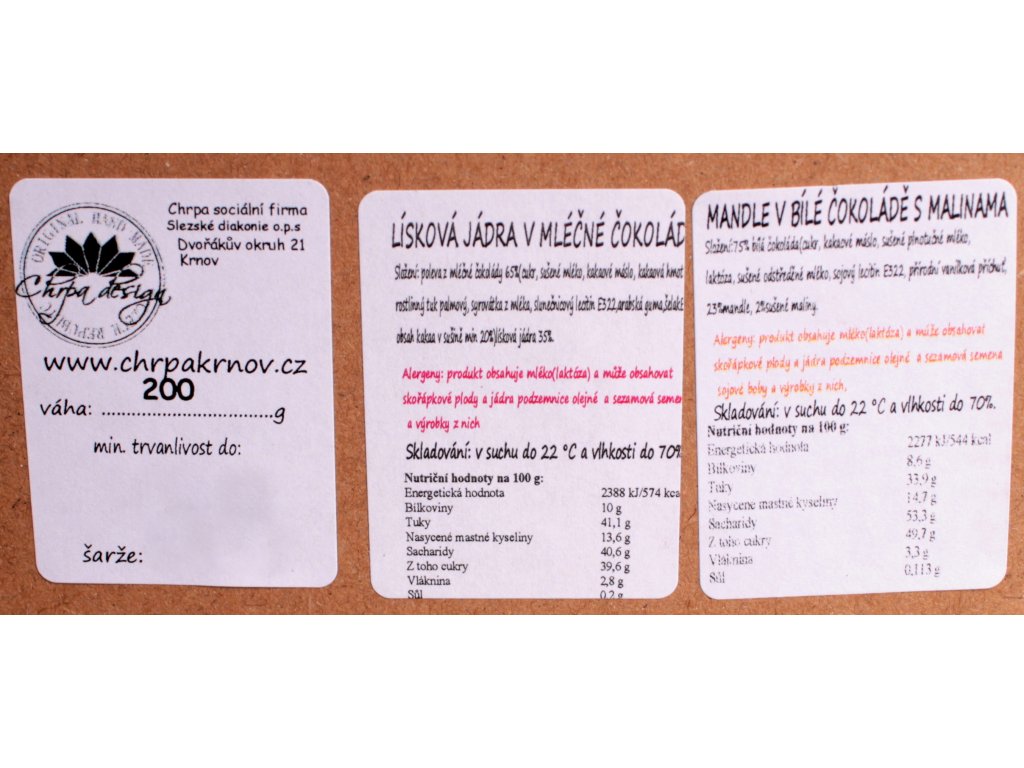 ORIGINAL HAND MADE
Chrpa design
CZECH REPUBLIC
Chrpa sociální firma
Slezské diakonie o.p.s
Dvořákův okruh 21
Krnov
www.chrpakrnov.cz
200
váha: ................................g
min. trvanlivost do:
šarže:
LÍSKOVÁ JÁDRA V MLÉČNÉ ČOKOLÁD
Složení: poleva z mléčné čokolády 65%(cukr, sušené mléko, kakaové máslo, kakaová hmot
rostlinný tuk palmový, syrovátka z mléka, slunečnicový lecitin E322,arabská guma,šelakE
obsah kakaa v sušině min 20%)lísková jádra 35%.
Alergeny: produkt obsahuje mléko(laktóza) a může obsahovat
skořápkové plody a jádra podzemnice olejné a sezamová semen
a výrobky z nich
Skladování: v suchu do 22 °C a vlhkosti do 70%
Nutriční hodnoty na 100 g:
Energetická hodnota 2388 kJ/574 kca
Bílkoviny 10 g
Tuky 41,1 g
Nasycené mastné kyseliny 13,6 g
Sacharidy 40,6 g
Z toho cukry 39,6 g
Vláknina 2,8 g
Sůl 0,2 g
MANDLE V BÍLÉ ČOKOLÁDĚ S MALINAMA
Složení:75% bílé čokoláda(cukr, kakaové máslo, sušené plnotučné mléko,
laktóza, sušené odstředěné mléko, sojový lecitin E322, přírodní vanilková příchuť,
23%mandle, 2%sušené maliny.
Alergeny: produkt obsahuje mléko(laktóza) a může obsahovat
skořápkové plody a jádra podzemnice olejné a sezamová semena
sojové boby a výrobky z nich,
Skladování: v suchu do 22 °C a vlhkosti do 70%.
Nutriční hodnoty na 100 g:
Energetická hodnota 2277 kJ/544 kcal
Bílkoviny 8,6 g
Tuky 33,9 g
Nasycené mastné kyseliny 14,7 g
Sacharidy 53,3 g
Z toho cukry 49,7 g
Vláknina 3,3 g
Sůl 0,113 g